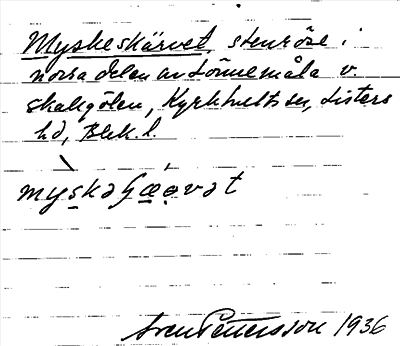 Myskeskärvet, stenröse i
norra delen av Lönnemåla v.
skakgölen, Kyrkhults sn, Listers
hd, Blek. l.
Sven Pettersson 1936